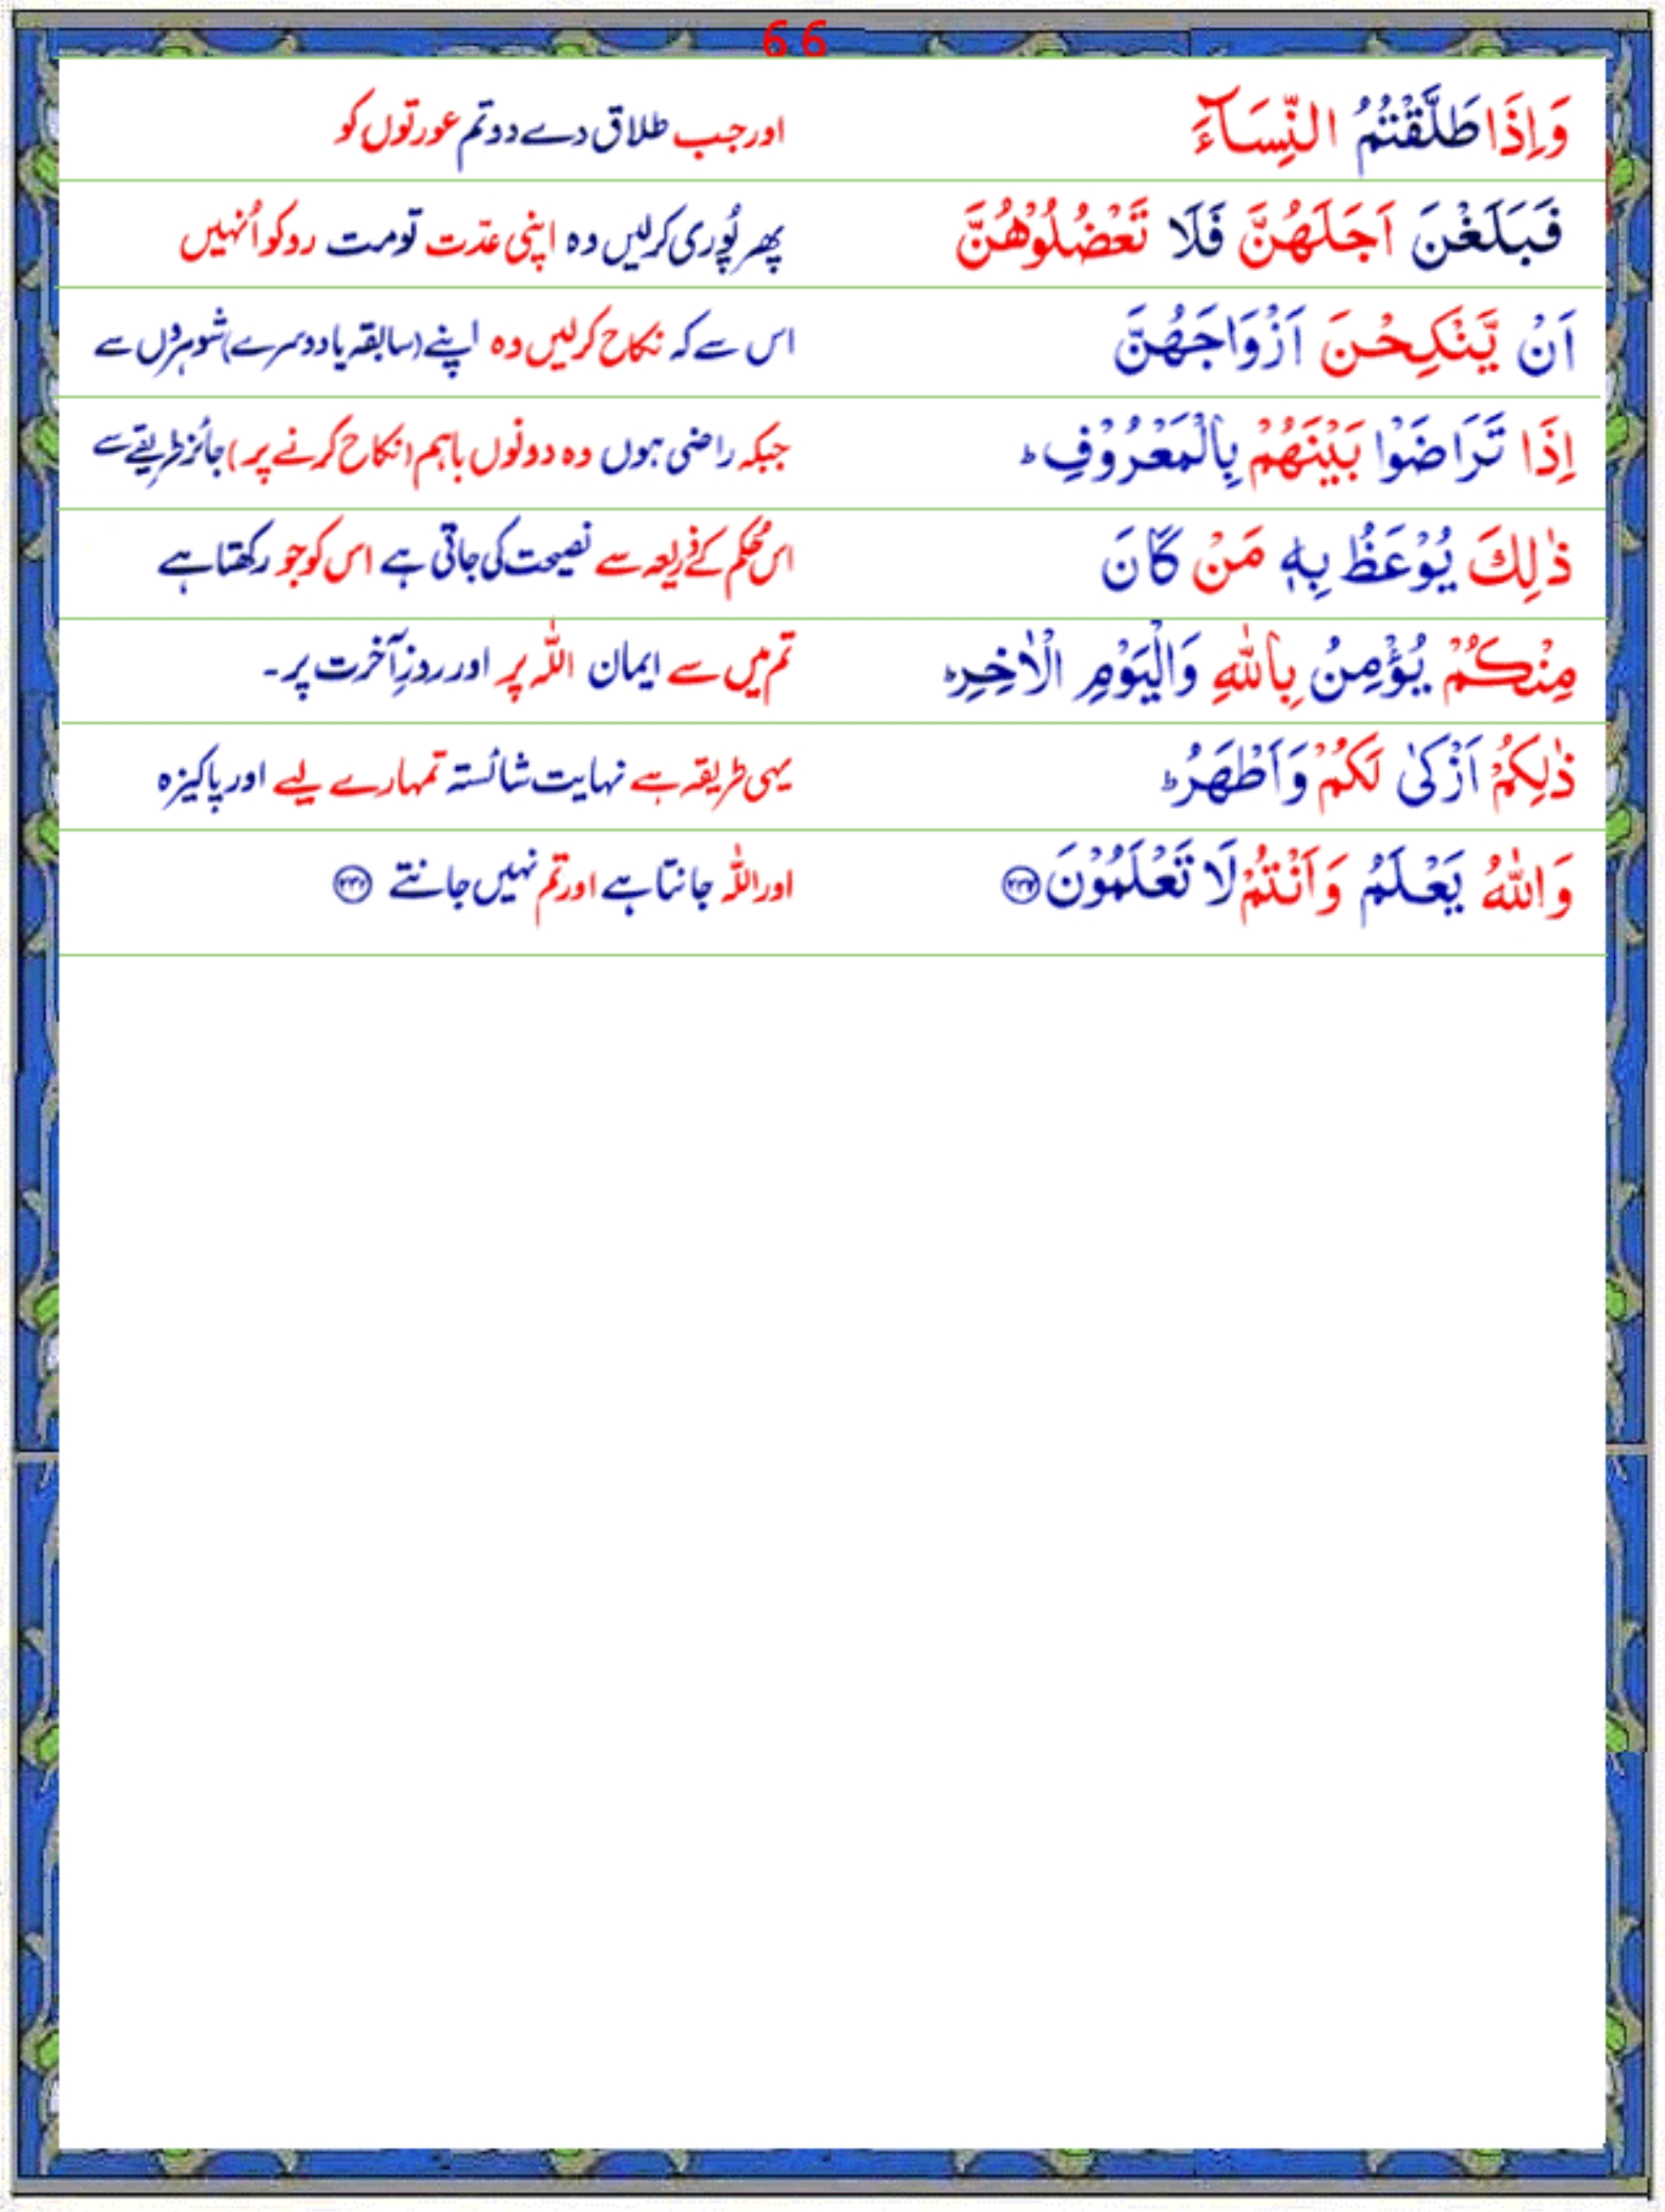 66
وَاِذَا طَلَّقْتُمُ النِّسَآءَ اور جب طلاق دے دو تم عورتوں کو
فَبَلَغْنَ اَجَلَهُنَّ فَلَا تَعْضُلُوْهُنَّ پھر پُوری کرلیں وہ اپنی عدّت تو مت روکو اُنہیں
اَنْ يَّنْكِحْنَ اَزْوَاجَهُنَّ اس سے کہ نکاح کرلیں وہ اپنے (سابقہ یا دوسرے) شوہروں سے
اِذَا تَرَاضَوْا بَيْنَهُمْ بِالْمَعْرُوْفِ ؕ جبکہ راضی ہوں وہ دونوں باہم (نکاح کرنے پر) جائز طریقے سے
ذٰلِكَ يُوْعَظُ بِهٖ مَنْ كَانَ اس حُکم کے ذریعہ سے نصیحت کی جاتی ہے اس کو جو رکھتا ہے
مِنْكُمْ يُؤْمِنُ بِاللّٰهِ وَالْيَوْمِ الْاٰخِرِ ؕ تم میں سے ایمان اللہ پر اور روزِ آخرت پر۔
ذٰلِكُمْ اَزْكٰى لَكُمْ وَاَطْهَرُ ؕ یہی طریقہ ہے نہایت شائستہ تمہارے لیے اور پاکیزہ
وَاللّٰهُ يَعْلَمُ وَاَنْتُمْ لَا تَعْلَمُوْنَ ۲۳۲ اور اللہ جانتا ہے اور تم نہیں جانتے ۲۳۲